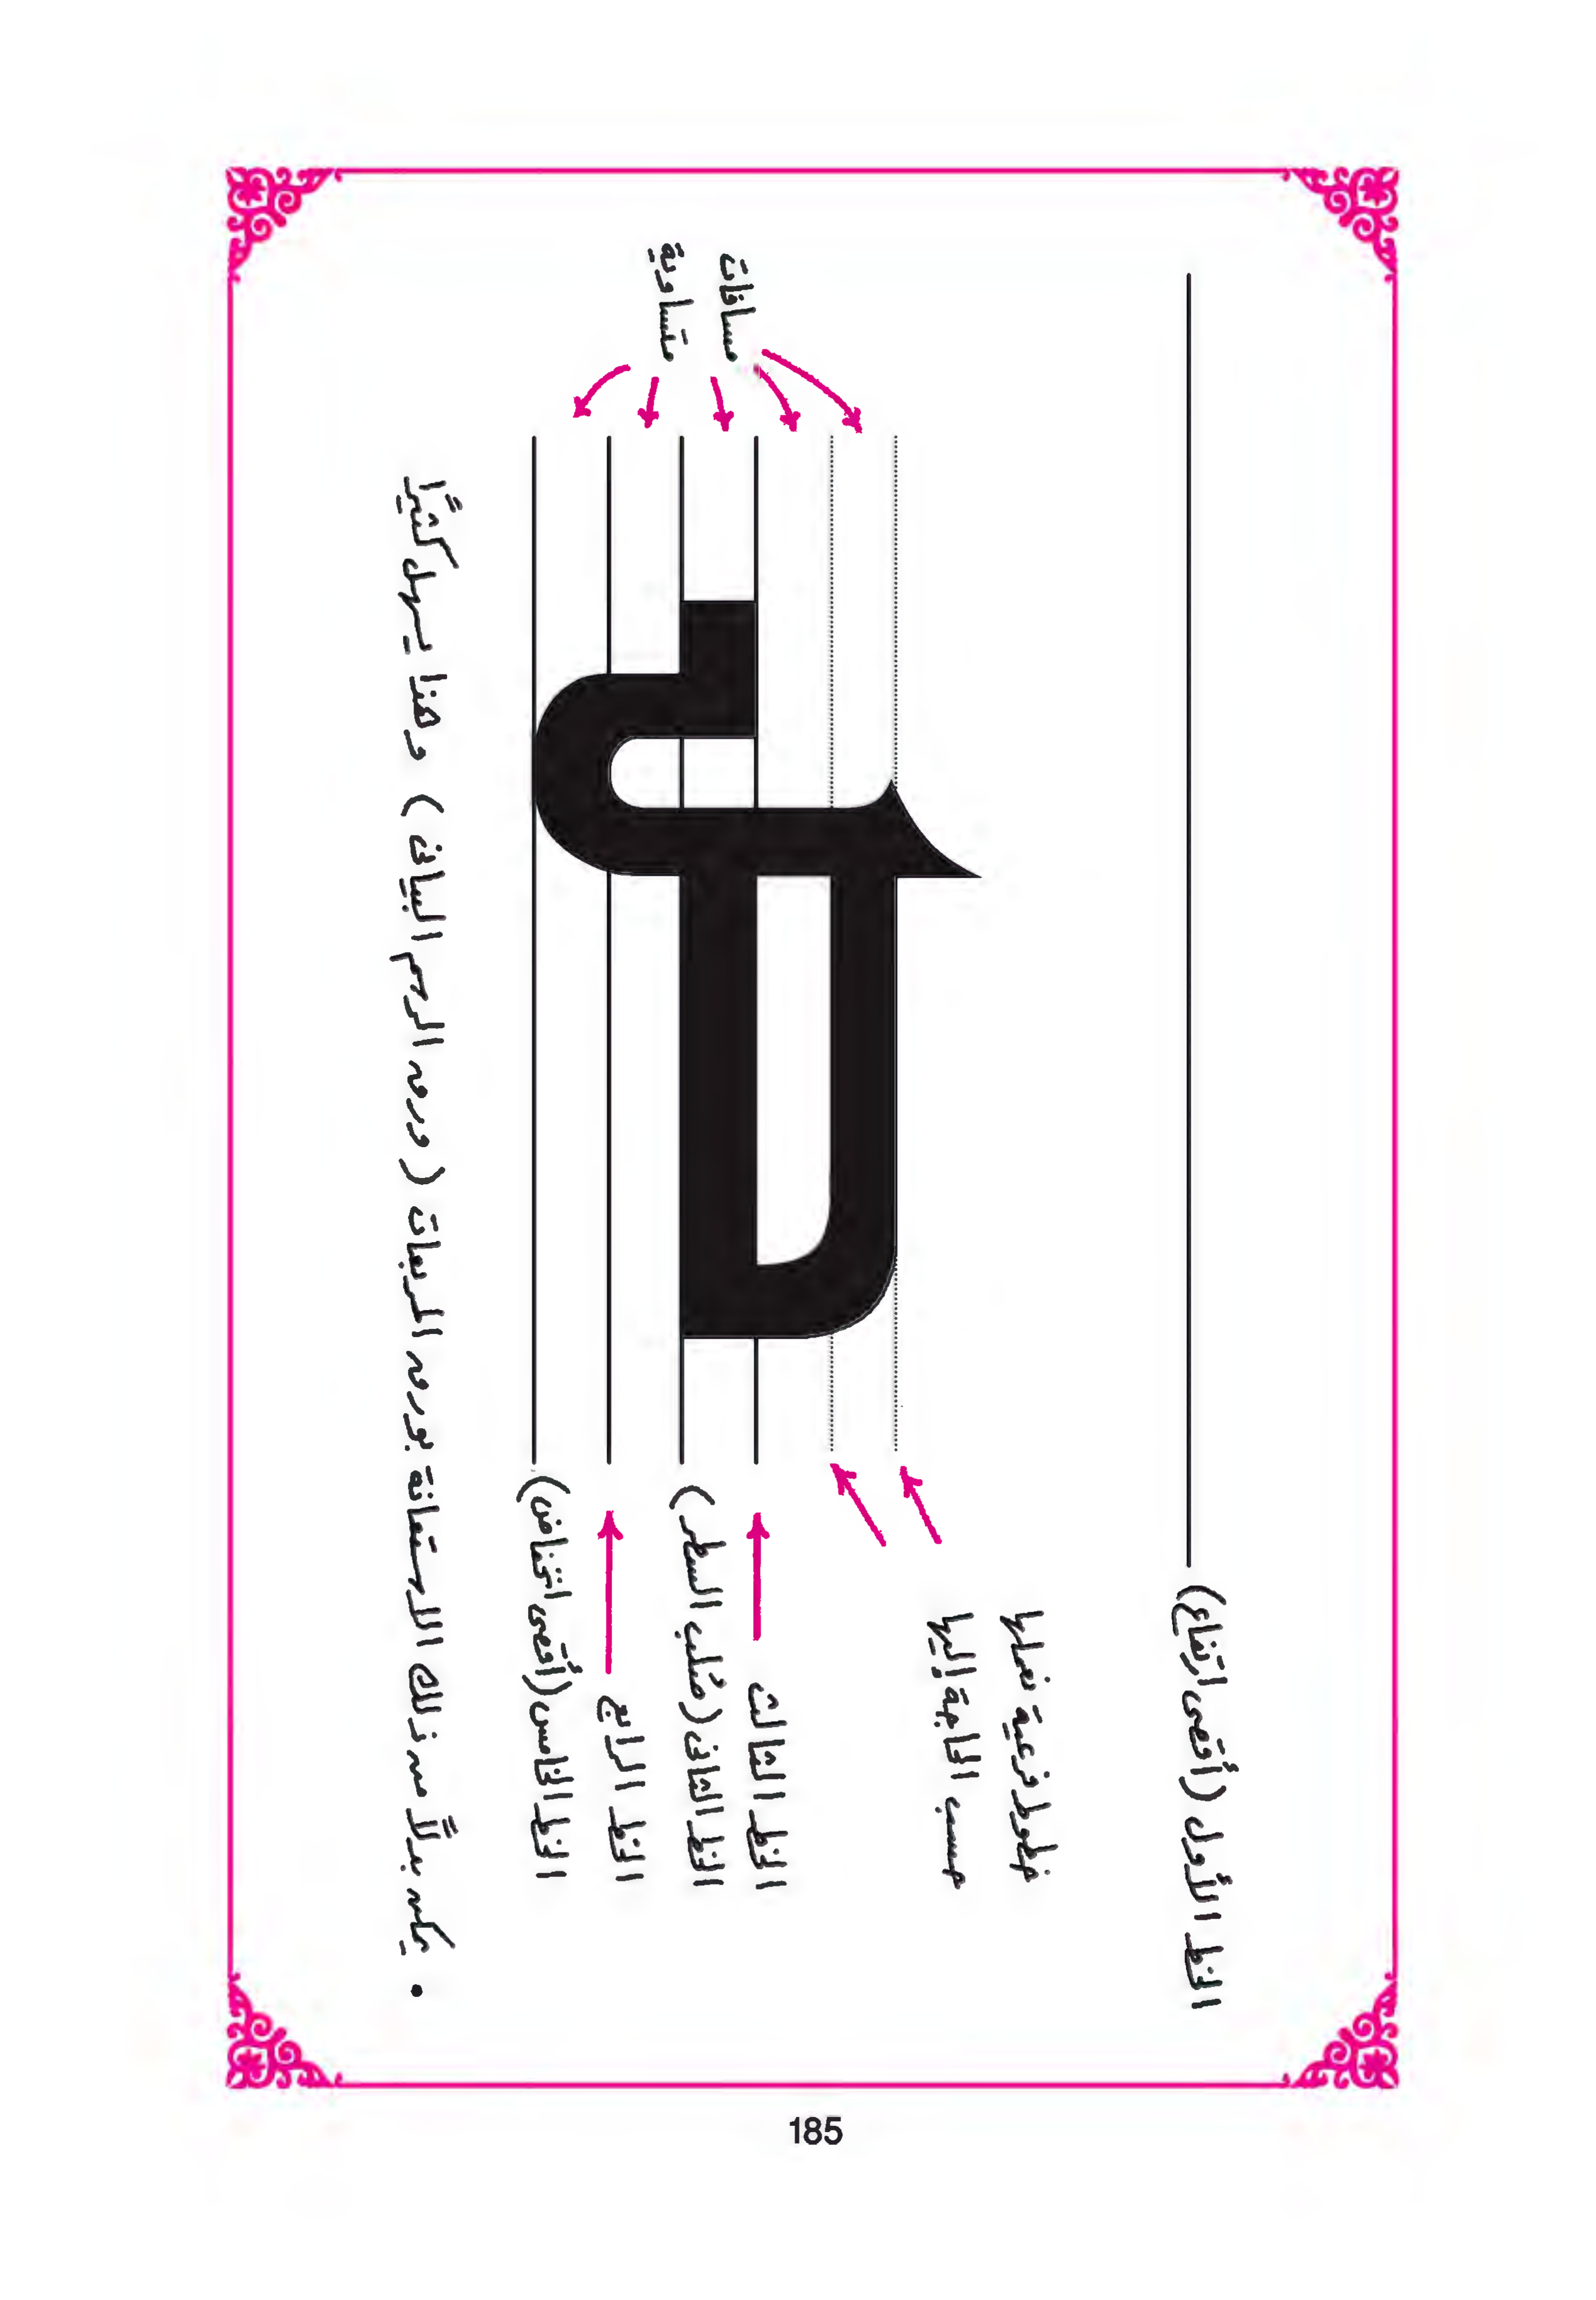 الخط الأول (أقصى ارتفاع)
خطوط فرعية نعملها
حسب الحاجة إليها
الخط الثالث
الخط الثانى (صُلب السطر)
الخط الرابع
الخط الخامس (أقصى انخفاض)
مسافات
متساوية
• يمكن بدلًا من ذلك الاستعانة بورق المربعات (ورق الرسم البيانى) وهذا يسهل كثيرًا
185